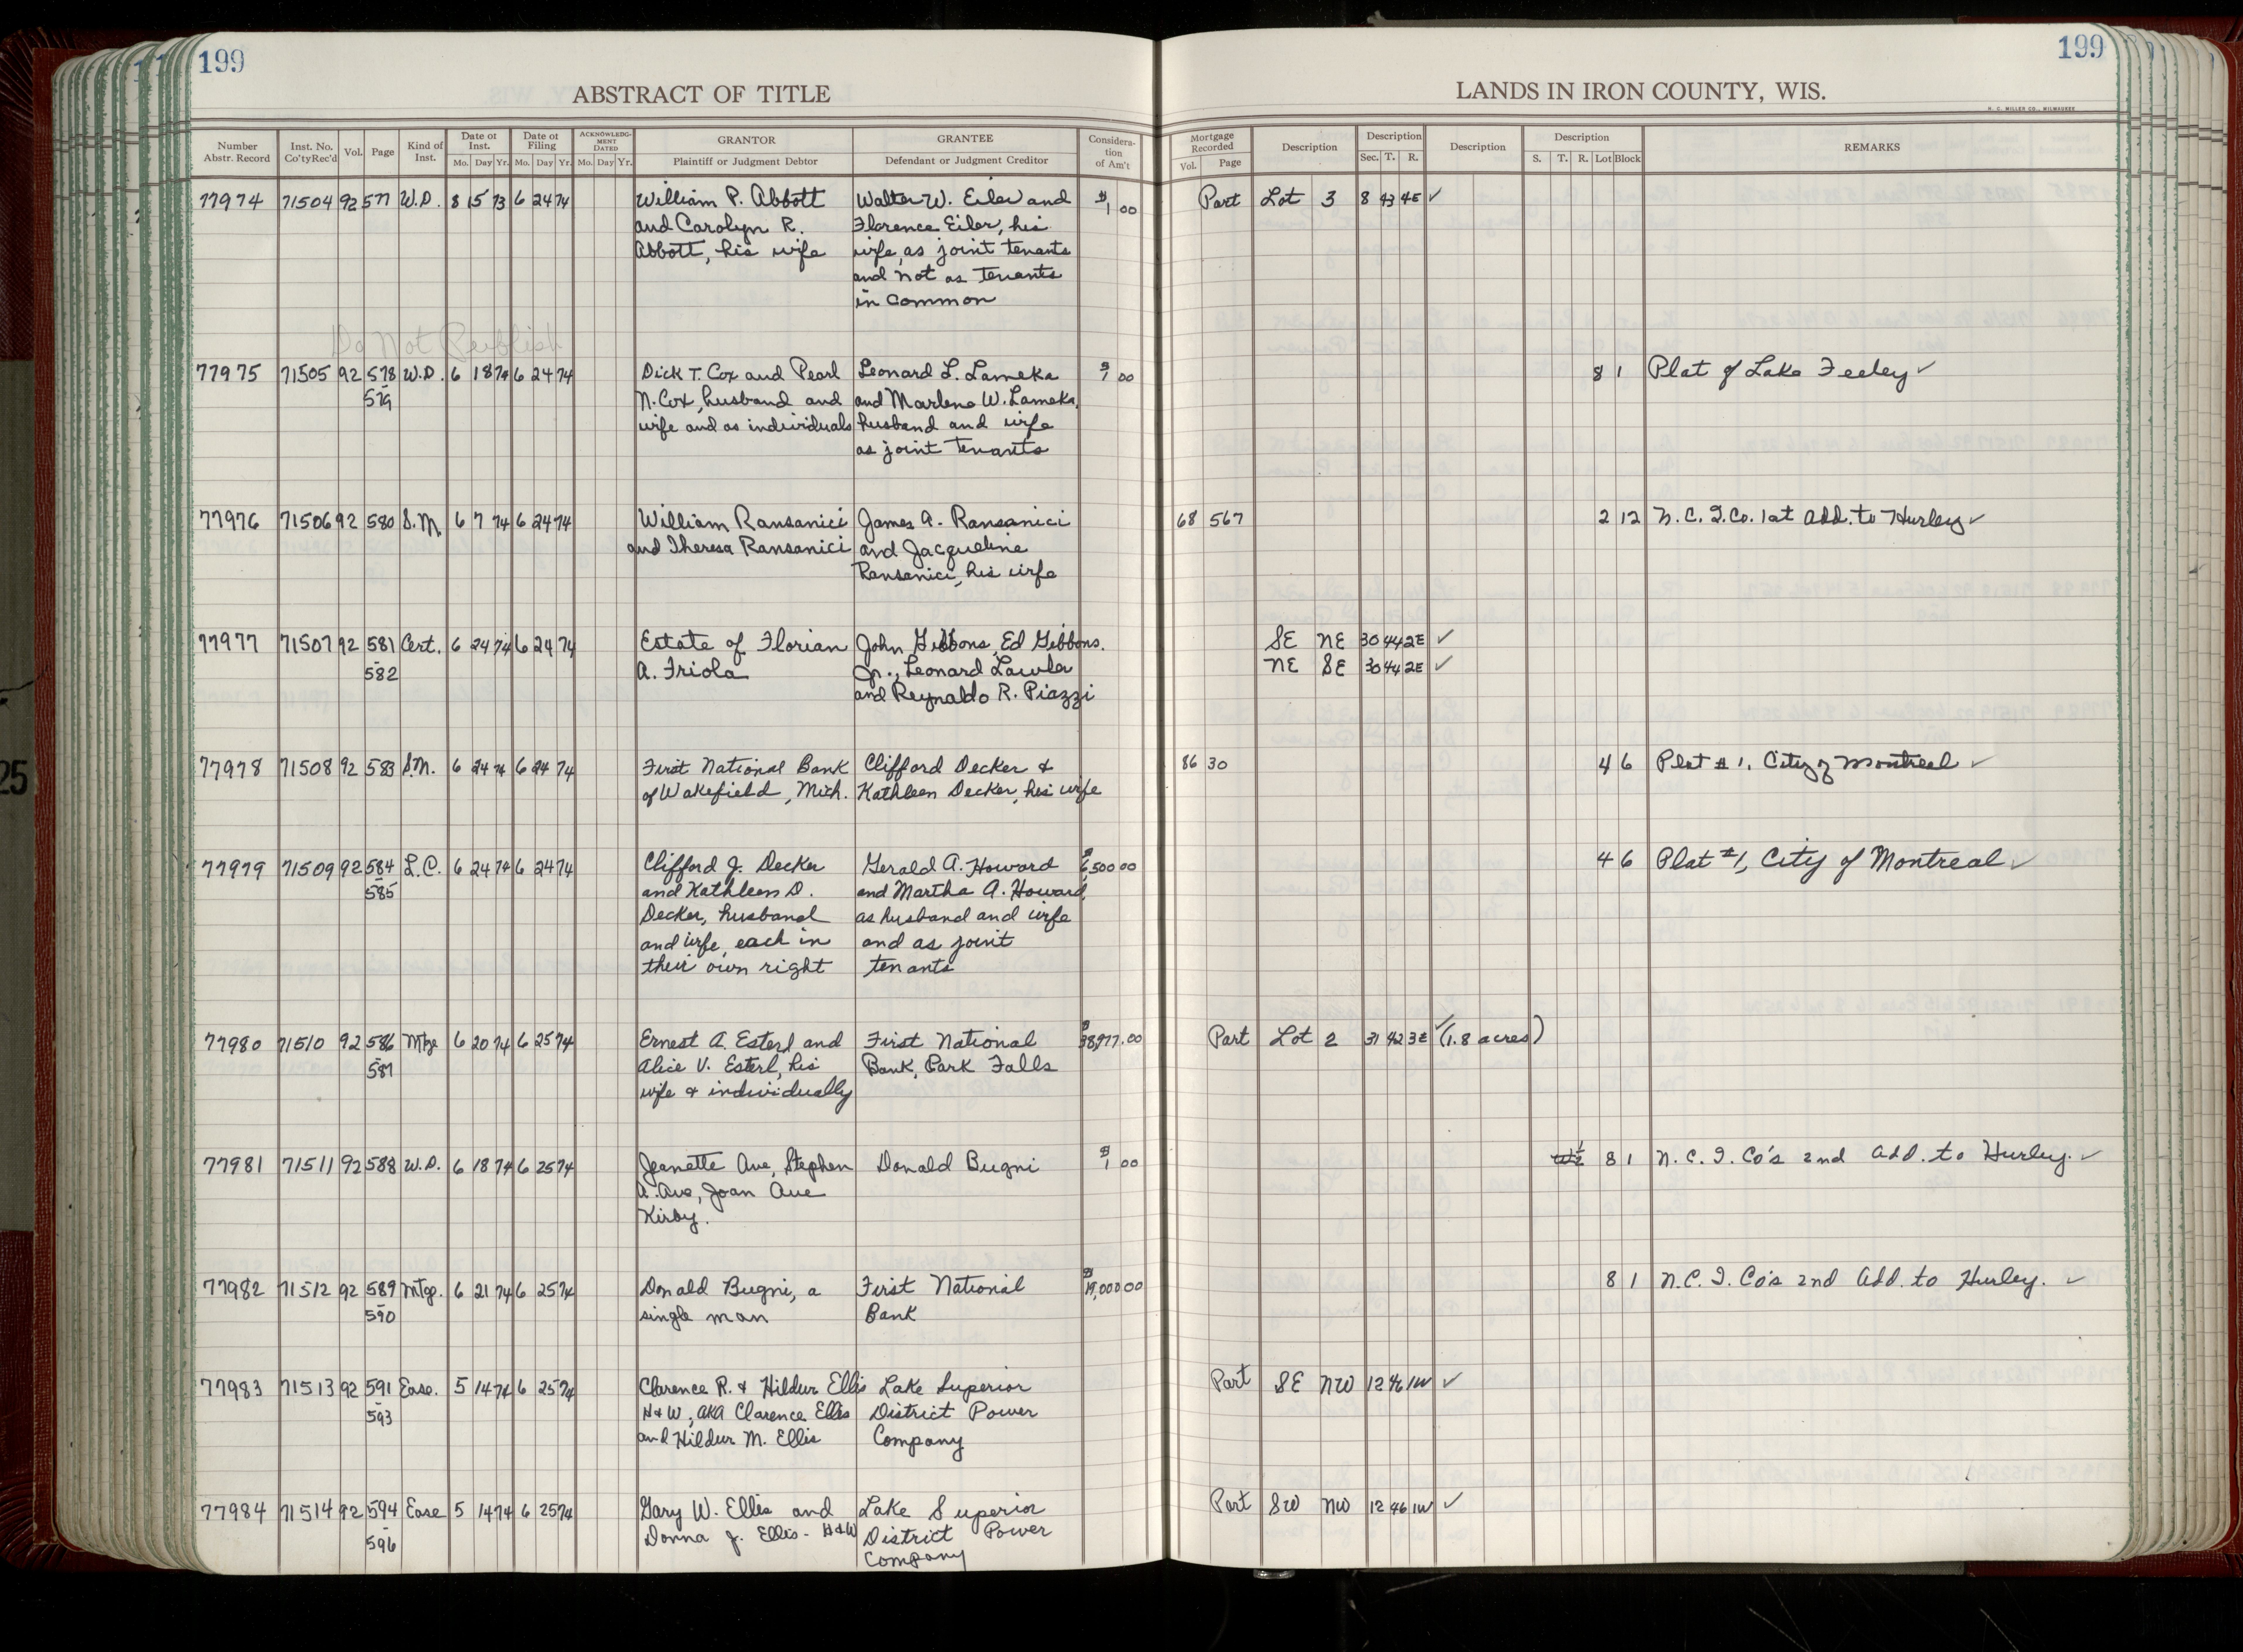 199
199
ABSTRACT OF TITLE
LANDS IN IRON COUNTY, WIS.
H. C. MILLER CO., MILWAUKEE
Number Abstr. Record | Inst. No. Co'tyRec'd | Vol. | Page | Kind of Inst. | Date of Inst. Mo. Day Yr. | Date of Filing Mo. Day Yr. | ACKNOWLEDGMENT DATED Mo. Day Yr. | GRANTOR Plaintiff or Judgment Debtor | GRANTEE Defendant or Judgment Creditor | Consideration of Am't | Mortgage Recorded Vol. Page | Description | Description Sec. T. R. | Description | Description S. T. R. Lot Block | REMARKS
77974 71504 92 577 W.D. 8 15 73 6 24 74 William P. Abbott Walter W. Eiler and $1 00 Part Lot 3 8 43 4E ✓
and Carolyn R. Florence Eiler, his
Abbott, his wife wife, as joint tenants
and not as tenants
in common
Do Not Publish
77975 71505 92 578 W.D. 6 18 74 6 24 74 Dick T. Cox and Pearl Leonard L. Lameka $1 00 8 1 Plat of Lake Feeley ✓
579 N. Cox, husband and and Marlene W. Lameka,
wife and as individuals husband and wife
as joint tenants
77976 71506 92 580 S.M. 6 7 74 6 24 74 William Ransanici James A. Ransanici 68 567 2 12 N.C.I.Co. 1st Add. to Hurley ✓
and Theresa Ransanici and Jacqueline
Ransanici, his wife
77977 71507 92 581 Cert. 6 24 74 6 24 74 Estate of Florian John Gibbons, Ed Gibbons. SE NE 30 44 2E ✓
582 A. Friola Jr., Leonard Lawler NE SE 30 44 2E ✓
and Reynaldo R. Piazzi
77978 71508 92 583 S.M. 6 24 74 6 24 74 First National Bank Clifford Decker & 86 30 4 6 Plat #1, City of Montreal ✓
of Wakefield, Mich. Kathleen Decker, his wife
77979 71509 92 584 L.C. 6 24 74 6 24 74 Clifford J. Decker Gerald A. Howard $6,500 00 4 6 Plat #1, City of Montreal ✓
585 and Kathleen D. and Martha A. Howard,
Decker, husband as husband and wife
and wife, each in and as joint
their own right tenants
77980 71510 92 586 Mtge 6 20 74 6 25 74 Ernest A. Esterl and First National $38,977.00 Part Lot 2 31 42 3E ✓ (1.8 acres)
587 Alice V. Esterl, his Bank, Park Falls
wife & individually
77981 71511 92 588 W.D. 6 18 74 6 25 74 Jeanette Ave, Stephen Donald Bugni $1 00 8 1 N.C.I. Co's 2nd Add. to Hurley. ✓
A. Ave, Joan Ave
Kirby.
77982 71512 92 589 Mtge. 6 21 74 6 25 74 Donald Bugni, a First National $19,000 00 8 1 N.C.I. Co's 2nd Add. to Hurley. ✓
590 single man Bank
77983 71513 92 591 Ease. 5 14 74 6 25 74 Clarence R. & Hildur Ellis Lake Superior Part SE NW 12 46 1W ✓
593 H&W, AKA Clarence Ellis District Power
and Hildur M. Ellis Company
77984 71514 92 594 Ease 5 14 74 6 25 74 Gary W. Ellis and Lake Superior Part SW NW 12 46 1W ✓
596 Donna J. Ellis - H&W District Power
Company